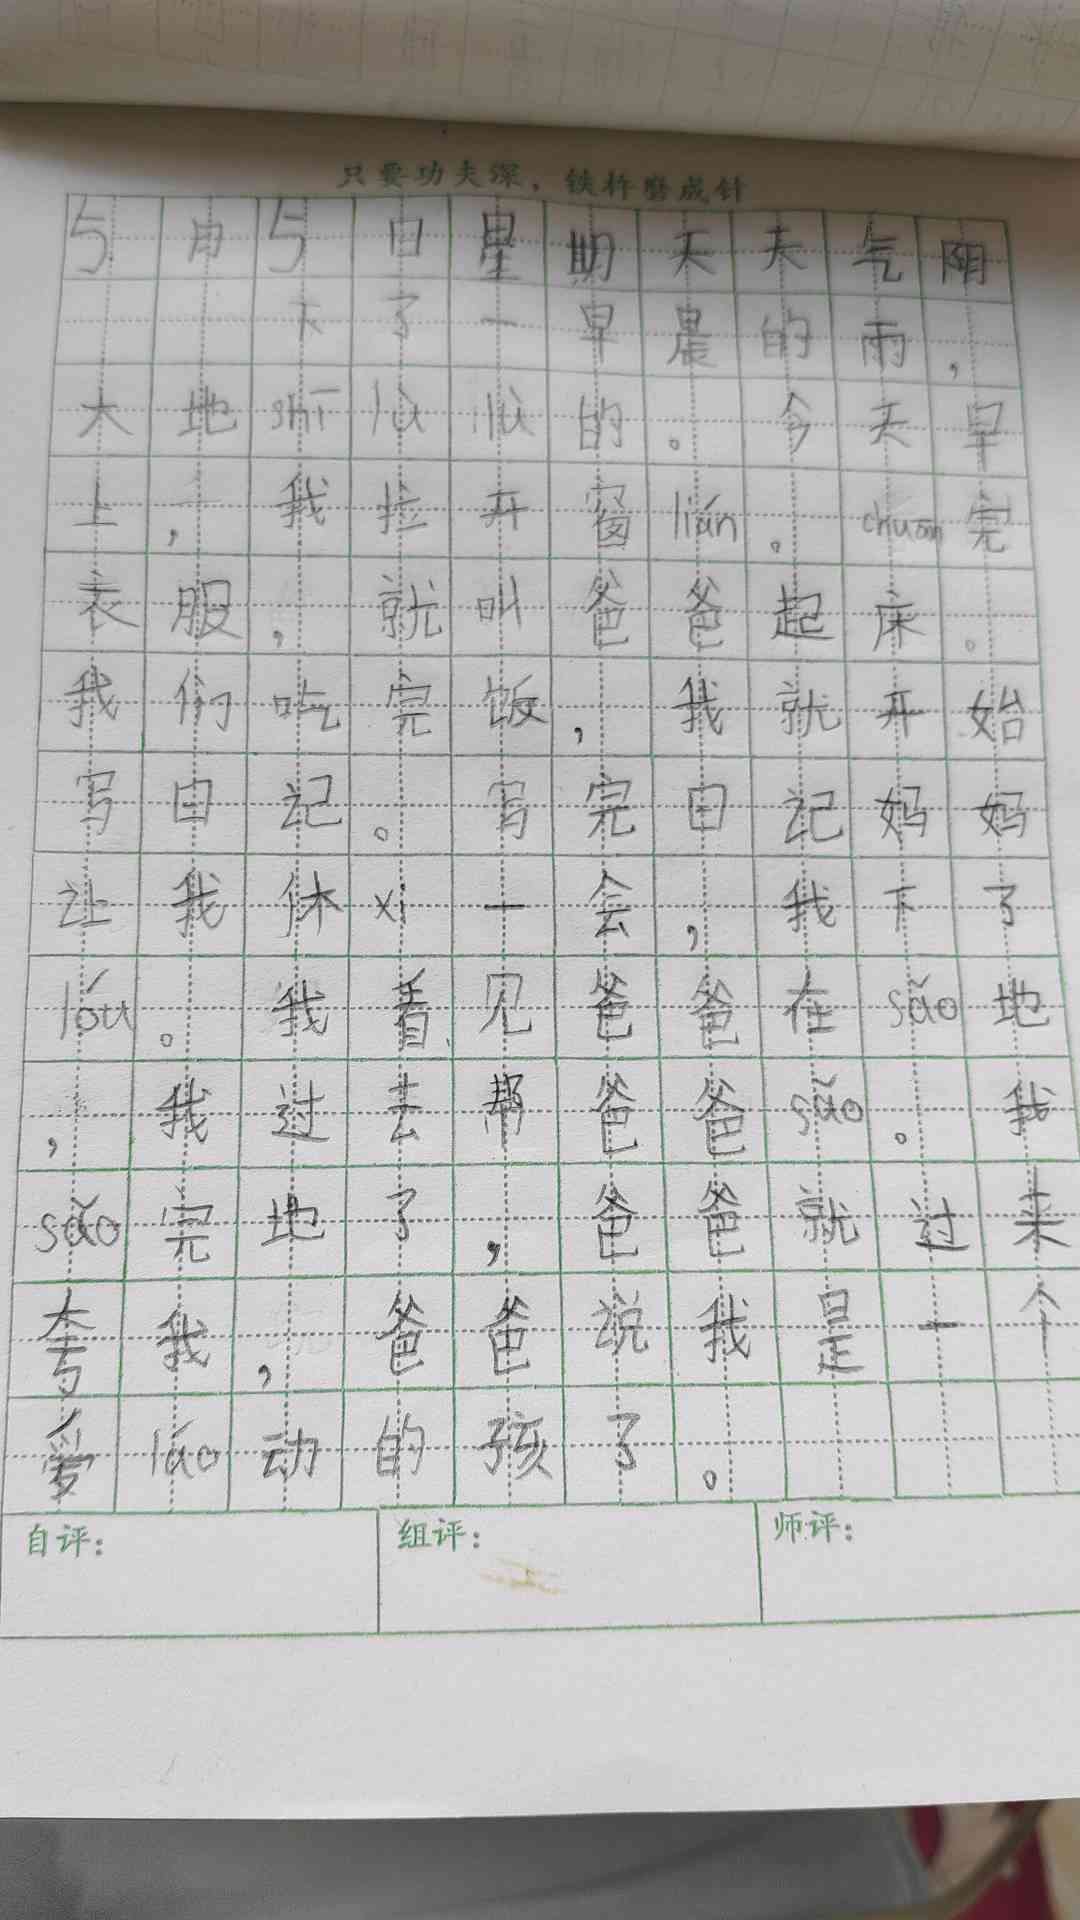 只要功夫深，铁杵磨成针
5月5日星期天天气阴
下了一早晨的雨，
大地shī lù lù的。今天早
上，我拉开窗lián。chuān完
衣服，就叫爸爸起床。
我们吃完饭，我就开始
写日记。写完日记妈妈
让我休xi一会，我下了
lóu。我看见爸爸在sǎo地
，我过去帮爸爸sǎo。我
sǎo完地了，爸爸就过来
夸我，爸爸说我是一个
爱láo动的孩了。
自评：
组评：
师评：